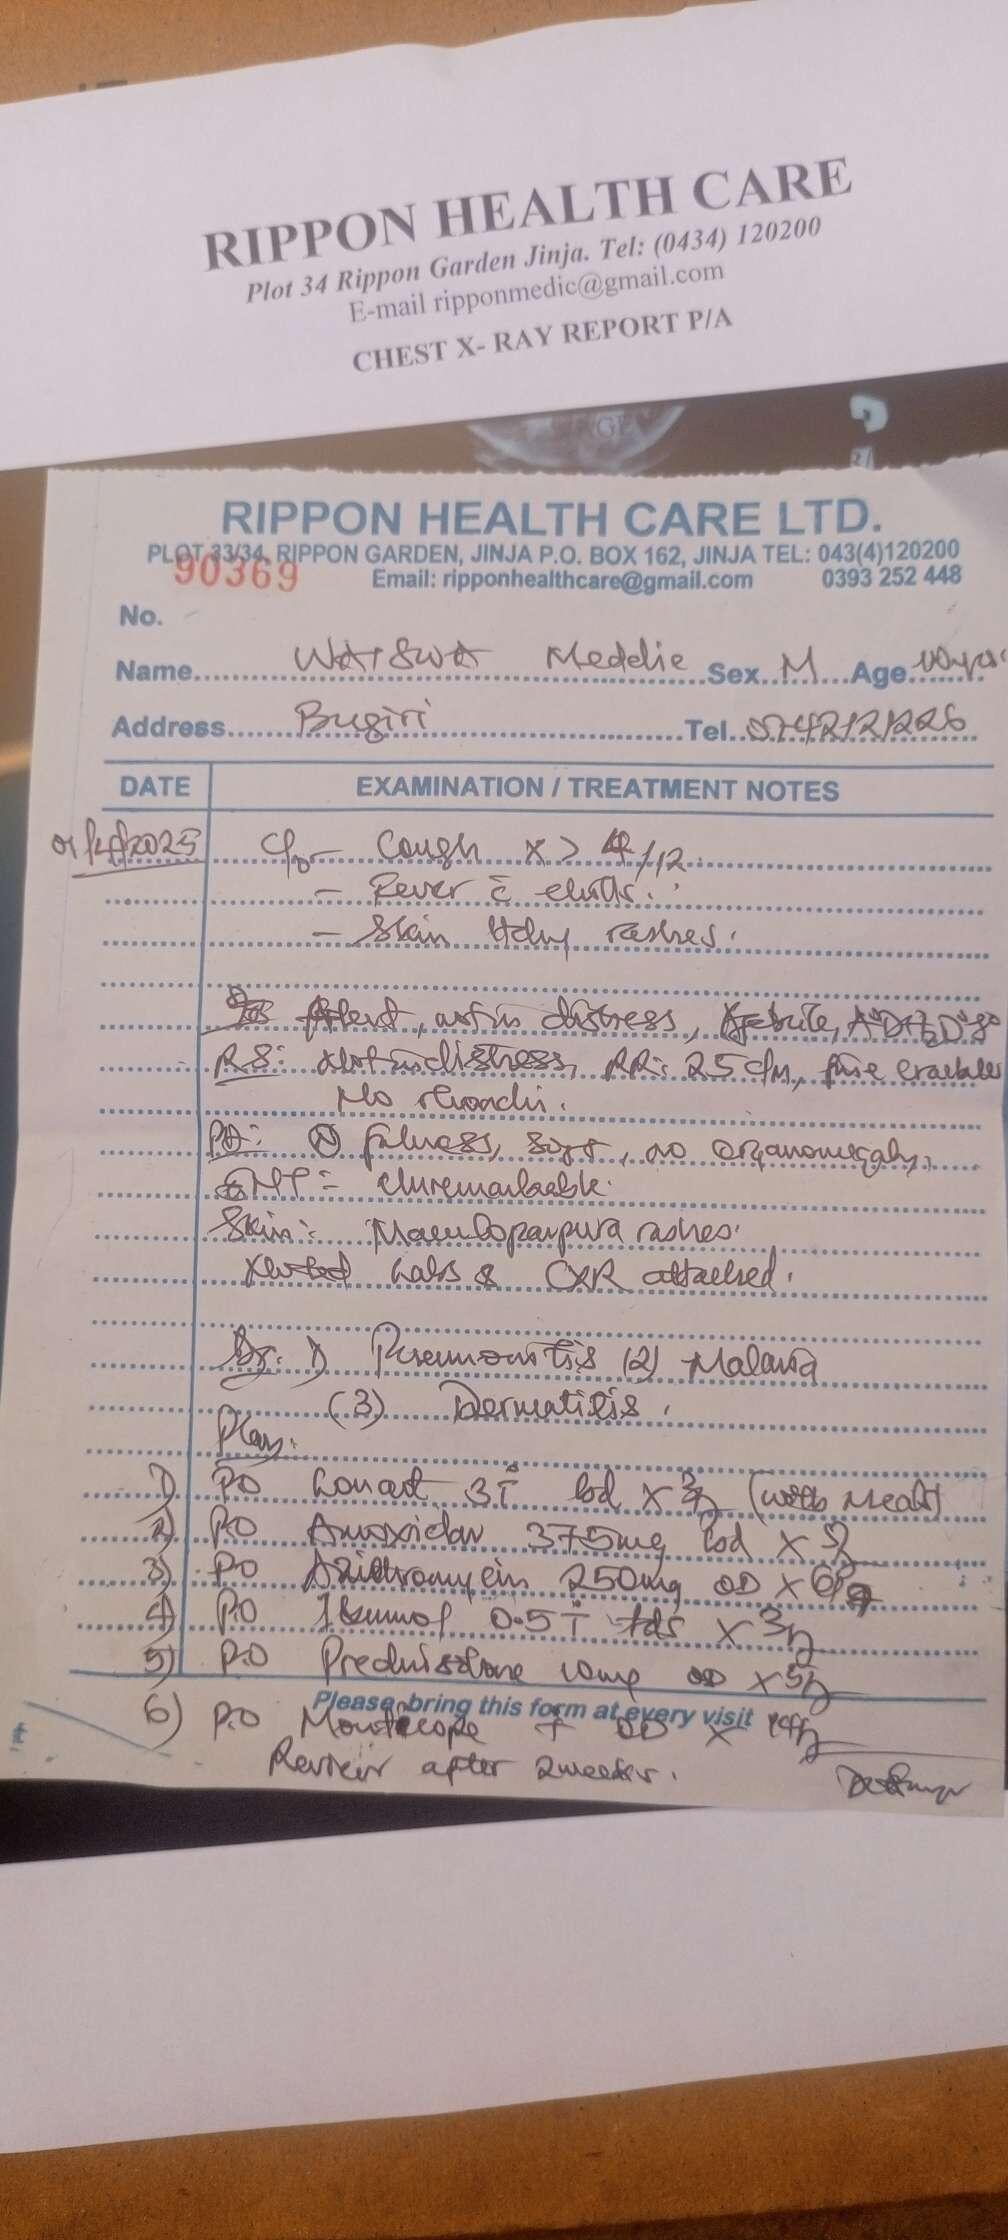 RIPPON HEALTH CARE
Plot 34 Rippon Garden Jinja. Tel: (0434) 120200
E-mail ripponmedic@gmail.com
CHEST X- RAY REPORT P/A
RIPPON HEALTH CARE LTD.
PLOT 33/34, RIPPON GARDEN, JINJA P.O. BOX 162, JINJA TEL: 043(4)120200
90369 Email: ripponhealthcare@gmail.com 0393 252 448
No.
Name WAISWA Meddie Sex M Age
Address Bugiri Tel. 0742121226
DATE EXAMINATION / TREATMENT NOTES
Cough x > 4/12
- Fever c chills.
- Skin itchy rashes.
Alert, not in distress, Afebrile,
RS: Not in distress, RR: 25 c/m, fine crackles
No rhonchi.
PA: (N) fullness, soft, no organomegaly.
ENT = Unremarkable.
Skin: rashes.
Noted Labs & CXR attached.
Dx: 1) Pneumonitis (2) Malaria
(3) Dermatitis.
Plan:
1) P.O Lonart bd x 3/7 (with meals)
2) P.O Amoxiclav 375mg bd x 5/7
3) P.O Azithromycin 250mg OD x
4) P.O 0.5 T tds x 3/7
5) P.O Prednisolone 10mg OD x 5/7
Please bring this form at every visit
6) P.O OD x
Review after 2 weeks.